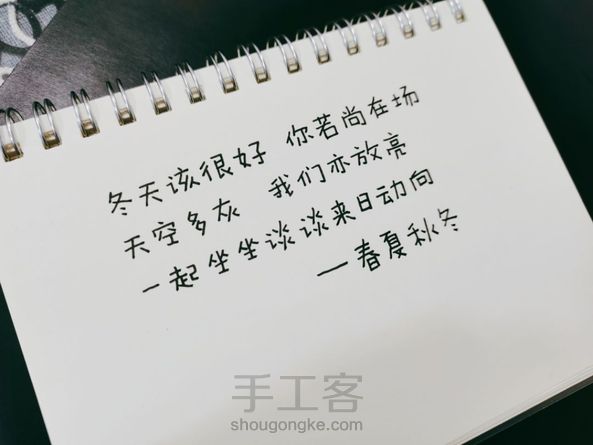 冬天该很好 你若尚在场
天空多灰 我们亦放亮
一起坐坐谈谈来日动向
—春夏秋冬
手工客
shougongke.com